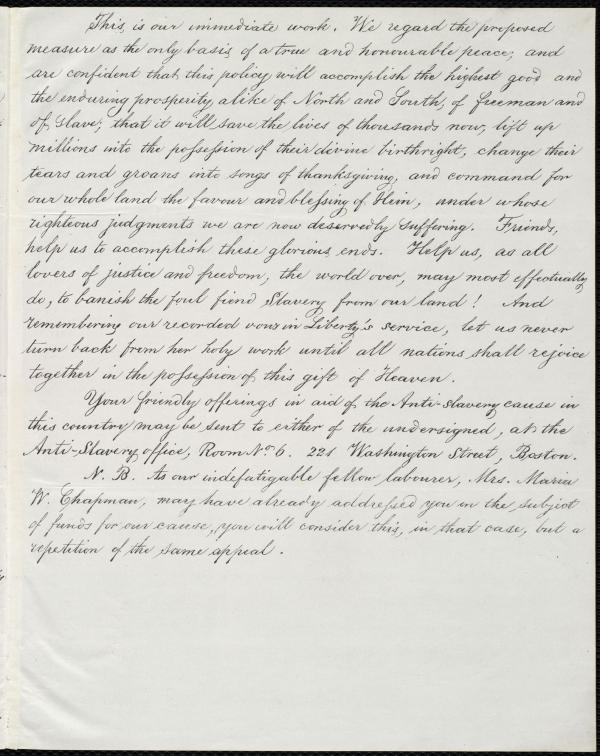 This is our immediate work. We regard the proposed
measure as the only basis of a true and honourable peace, and
are confident that this policy will accomplish the highest good and
the enduring prosperity, alike of North and South, of freeman and
of slave; that it will save the lives of thousands now, lift up
millions into the possession of their divine birthright, change their
tears and groans into songs of thanksgiving, and command for
our whole land the favour and blessing of Him, under whose
righteous judgments we are now deservedly suffering. Friends,
help us to accomplish these glorious ends. Help us, as all
lovers of justice and freedom, the world over, may most effectually
do, to banish the foul fiend Slavery from our land! And
remembering our recorded vows in Liberty's service, let us never
turn back from her holy work until all nations shall rejoice
together in the possession of this gift of Heaven.
Your friendly offerings in aid of the Anti-Slavery cause in
this country may be sent to either of the undersigned, at the
Anti-Slavery office, Room No 6. 221 Washington Street, Boston.
N. B. As our indefatigable fellow labourer, Mrs. Maria
W. Chapman, may have already addressed you on the subject
of funds for our cause, you will consider this, in that case, but a
repetition of the same appeal.